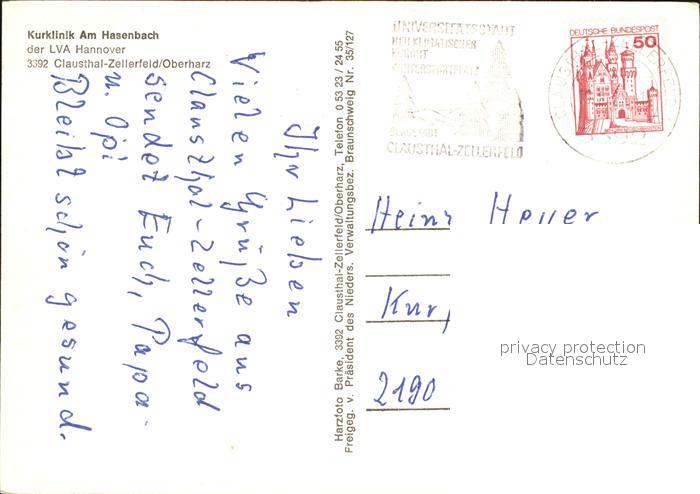 Kurklinik Am Hasenbach
der LVA Hannover
3392 Clausthal-Zellerfeld/Oberharz
Ihr Lieben
Vielen Grüße aus
Clausthal-Zellerfeld
sendet Euch, Papa
u. Opi
Bleibt schön gesund.
Harzfoto Barke, 3392 Clausthal-Zellerfeld/Oberharz, Telefon 0 53 23 / 24 55
Freigeg. v. Präsident des Nieders. Verwaltungsbez. Braunschweig Nr. 35/127
UNIVERSITÄTSSTADT
HEILKLIMATISCHER
KURORT
WINTERSPORTPLATZ
BERGSTADT
CLAUSTHAL-ZELLERFELD
DEUTSCHE BUNDESPOST
50
Heinz Heller
Kur,
2190
privacy protection
Datenschutz